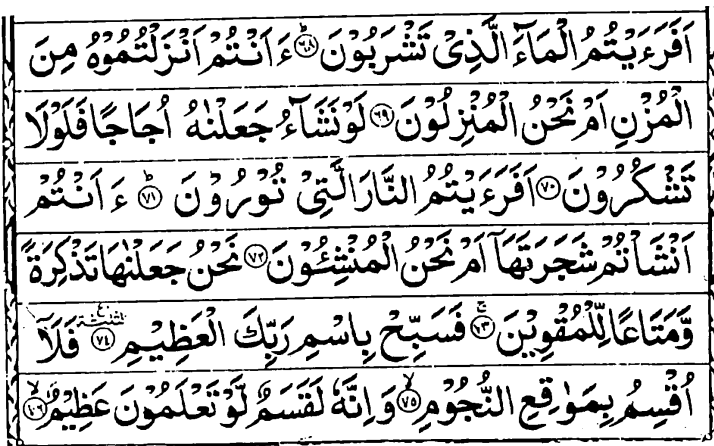 اَفَرَءَيْتُمُ الْمَآءَ الَّذِىْ تَشْرَبُوْنَ ۞ؕ۶۸ ءَاَنْتُمْ اَنْزَلْتُمُوْهُ مِنَ
الْمُزْنِ اَمْ نَحْنُ الْمُنْزِلُوْنَ ۶۹ لَوْ نَشَآءُ جَعَلْنٰهُ اُجَاجًا فَلَوْلَا
تَشْكُرُوْنَ ۷۰ اَفَرَءَيْتُمُ النَّارَ الَّتِىْ تُوْرُوْنَ ؕ۷۱ ءَاَنْتُمْ
اَنْشَاْتُمْ شَجَرَتَهَاۤ اَمْ نَحْنُ الْمُنْشِـُٔوْنَ ۷۲ نَحْنُ جَعَلْنٰهَا تَذْكِرَةً
وَّمَتَاعًا لِّلْمُقْوِيْنَ ۚ۷۳ فَسَبِّحْ بِاسْمِ رَبِّكَ الْعَظِيْمِ ۷۴ فَلَاۤ
اُقْسِمُ بِمَوٰقِعِ النُّجُوْمِ ۙ۷۵ وَاِنَّهٗ لَقَسَمٌ لَّوْ تَعْلَمُوْنَ عَظِيْمٌ ۙ۷۶